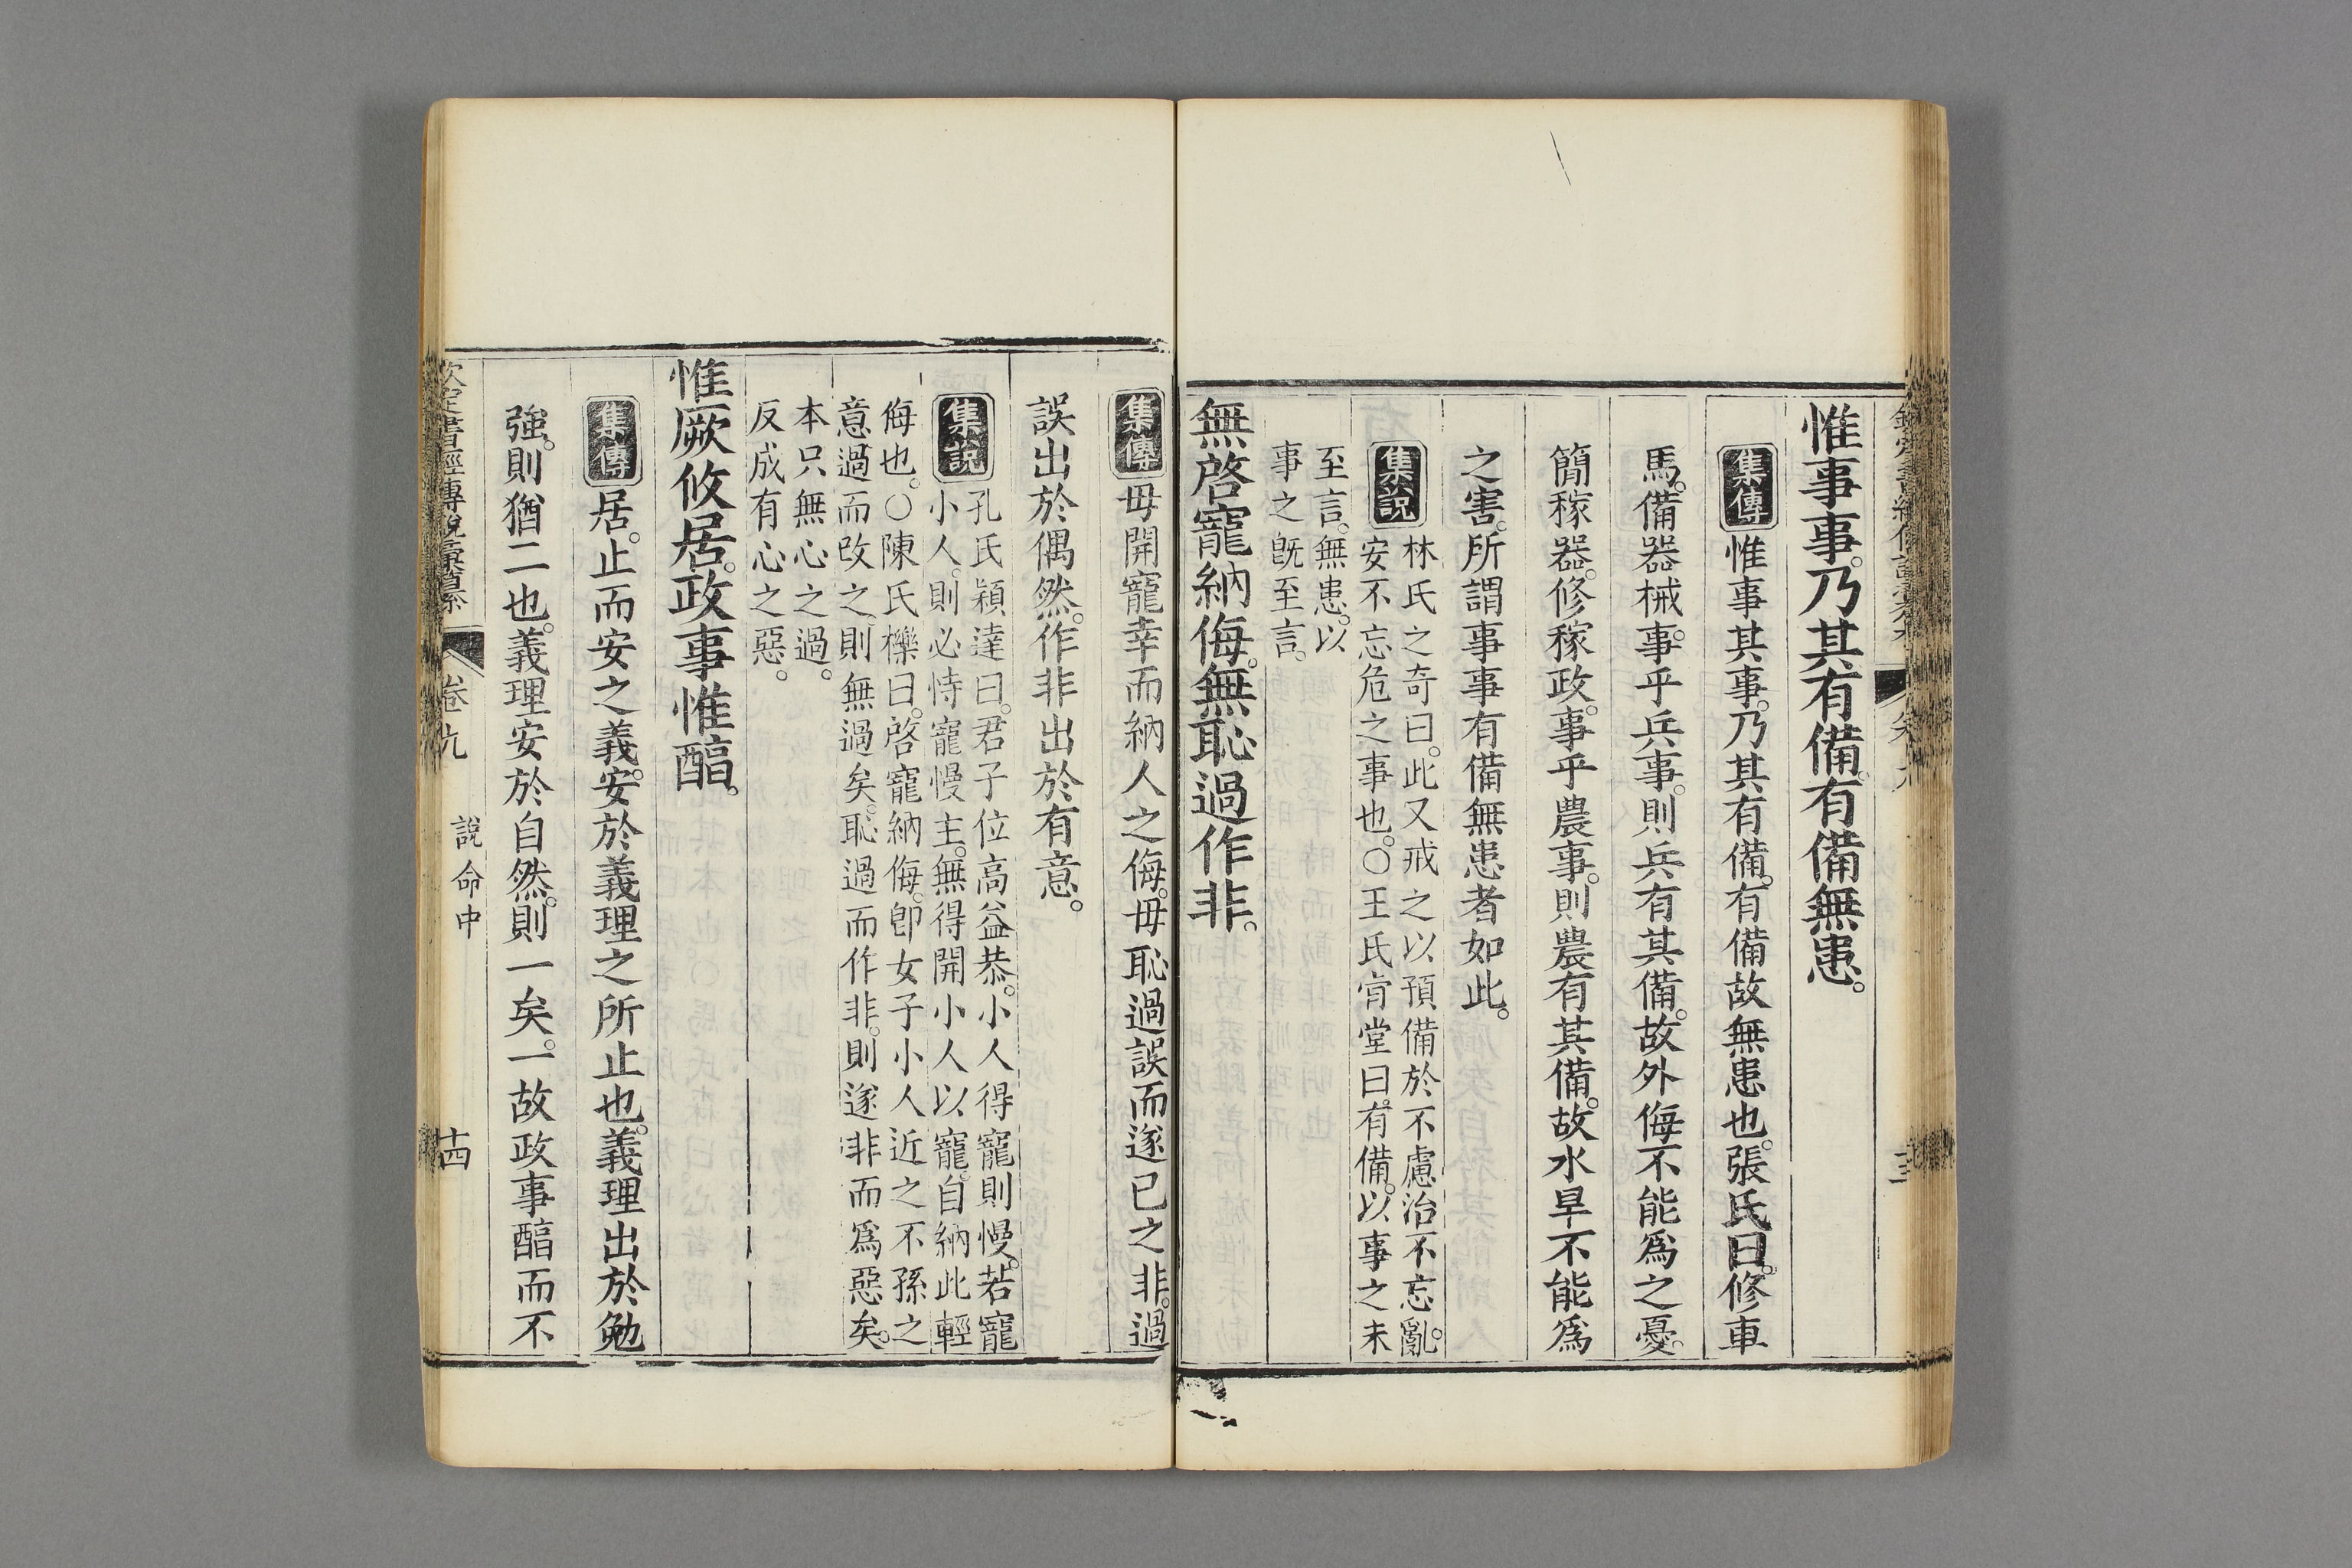 惟事事。乃其有備。有備無患。
集傳 惟事其事。乃其有備。有備故無患也。張氏曰。修車
馬。備器械。事乎兵事。則兵有其備。故外侮不能爲之憂。
簡稼器。修稼政。事乎農事。則農有其備。故水旱不能爲
之害。所謂事事有備無患者如此。
集說 林氏之奇曰。此又戒之以預備於不慮治不忘亂。
安不忘危之事也。○王氏肯堂曰。有備。以事之未
至言。無患。以
事之旣至言。
無啓寵納侮。無恥過作非。
集傳 毋開寵幸而納人之侮。毋恥過誤而遂已之非。過
誤出於偶然。作非出於有意。
集說 孔氏穎達曰。君子位高益恭。小人得寵則慢。若寵
小人。則必恃寵慢主。無得開小人以寵。自納此輕
侮也。○陳氏櫟曰。啓寵納侮。卽女子小人近之不孫之
意過而改之。則無過矣。恥過而作非。則遂非而爲惡矣。
本只無心之過。
反成有心之惡。
惟厥攸居。政事惟醇。
集傳 居。止而安之義。安於義理之所止也。義理出於勉
強。則猶二也。義理安於自然。則一矣。一故政事醇而不
欽定書經傳說彙纂
卷九
說命中
十四